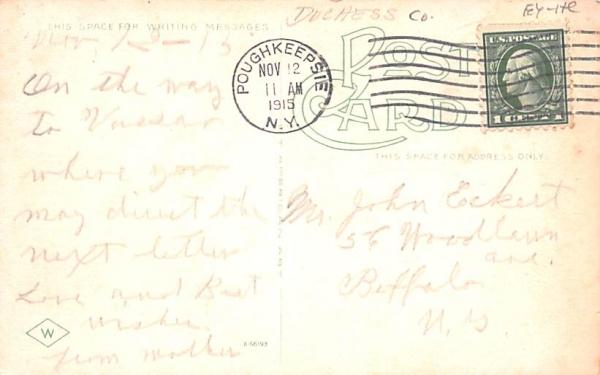 DUCHESS CO.
EY-HR
THIS SPACE FOR WRITING MESSAGES
POST CARD
POUGHKEEPSIE
NOV 12
11 AM
1915
N.Y.
U.S. POSTAGE
1 CENT 1
THIS SPACE FOR ADDRESS ONLY.
Nov
On the way
to Vassar
where you
may direct the
next letter
Love and Best
wishes
from mother
Mr. John Eckert
56 Woodlawn
ave.
Buffalo
N. Y.
W